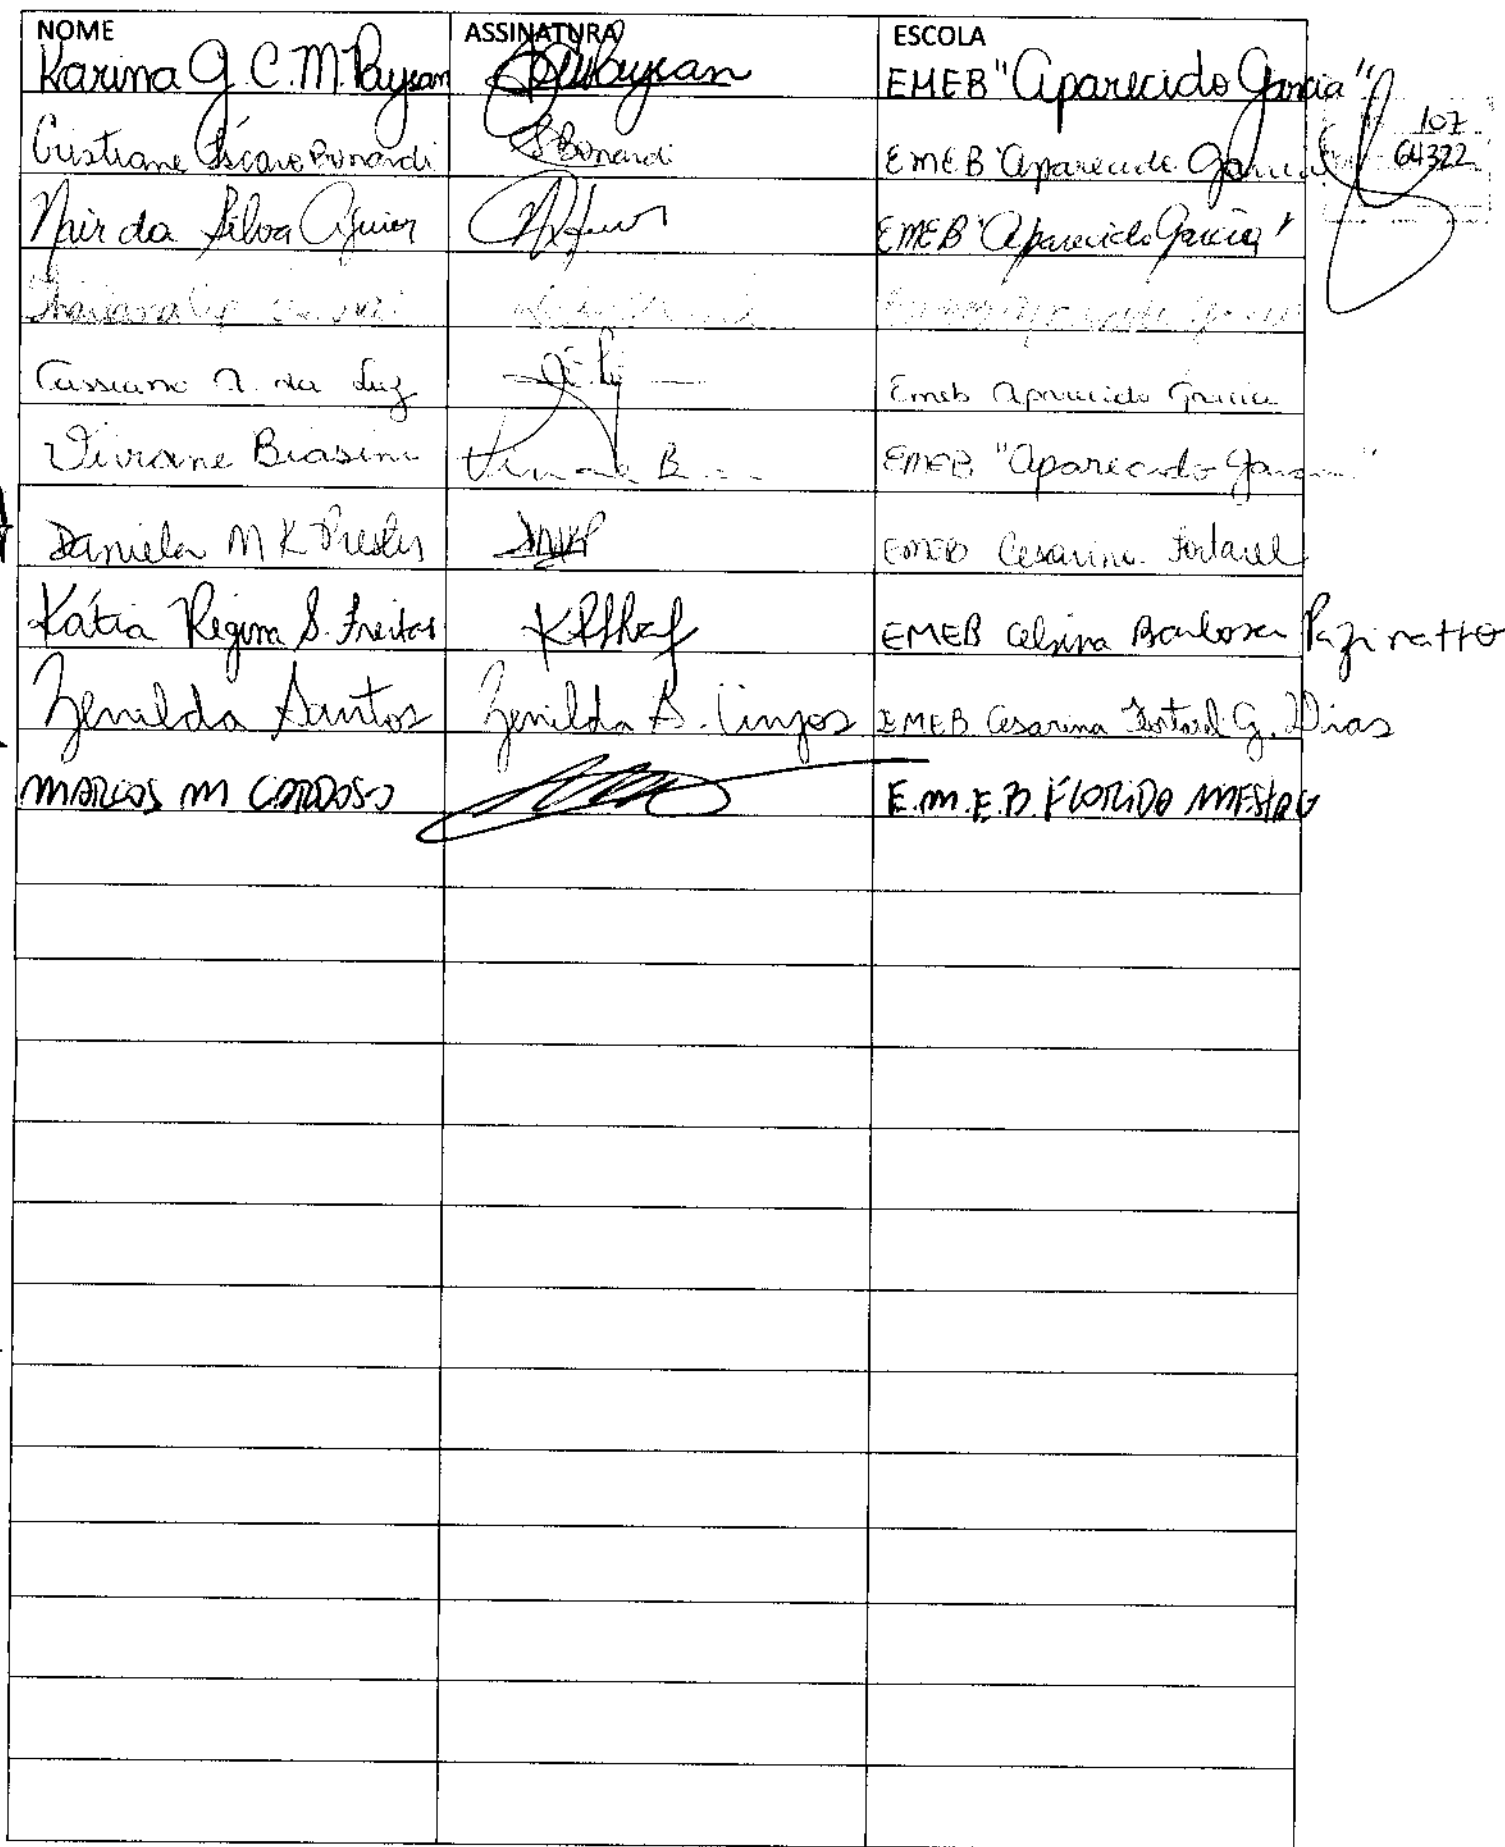 NOME ASSINATURA ESCOLA
Karina G. C. M. Paysan Paysan EMEB "Aparecido Garcia"
107
Cristiane Bonardi Bonardi EMEB "Aparecido Garcia"
64322
Nair da Silva Aguiar EMEB "Aparecido Garcia"
Cassiano A. da Luz Emeb Aparecido Garcia
Viviane Biasini Viviane B EMEB "Aparecido Garcia"
Daniela M K Prestes DMKP EMEB Cesarina Fortarel
Kátia Regina S. Freitas EMEB Celsina Barbosa Pazinatto
Zenilda Santos Zenilda S. Anjos EMEB Cesarina Fortarel G. Dias
MARCOS M CARDOSO E.M.E.B. FLORIDO MAESTRO